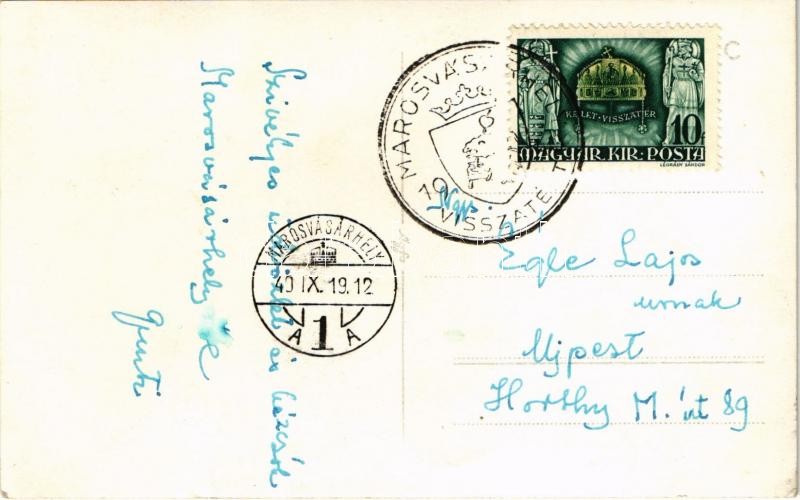 Szívélyes üdvözlet és kézcsók
Marosvásárhelyről
Gyuszi
MAROSVÁSÁRHELY
VISSZATÉRT
19
KELET·VISSZATÉR
10f
MAGYAR·KIR·POSTA
LÉGRÁDY SÁNDOR
MAROSVÁSÁRHELY
40 IX. 19.12
A 1 A
Ngs.
Égle Lajos
urnak
Ujpest
Horthy M. út 89
C